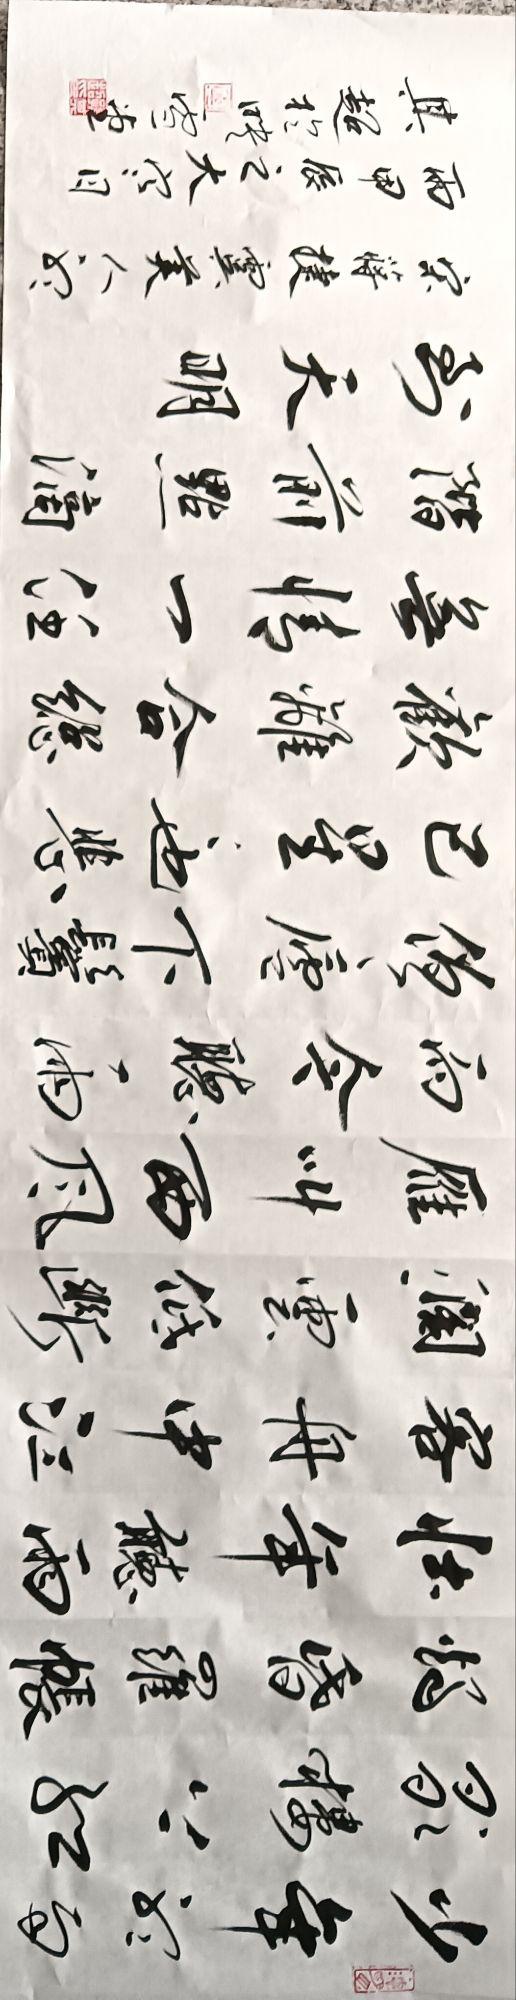 少年聽雨
歌樓上紅
燭昏羅帳
壯年聽雨
客舟中江
闊雲低斷
雁叫西風
而今聽雨
僧廬下鬢
已星〻也悲
歡離合總
無情一任
階前點滴
到天明
宋蔣捷虞美人聽
雨甲辰之大雪月
其超於